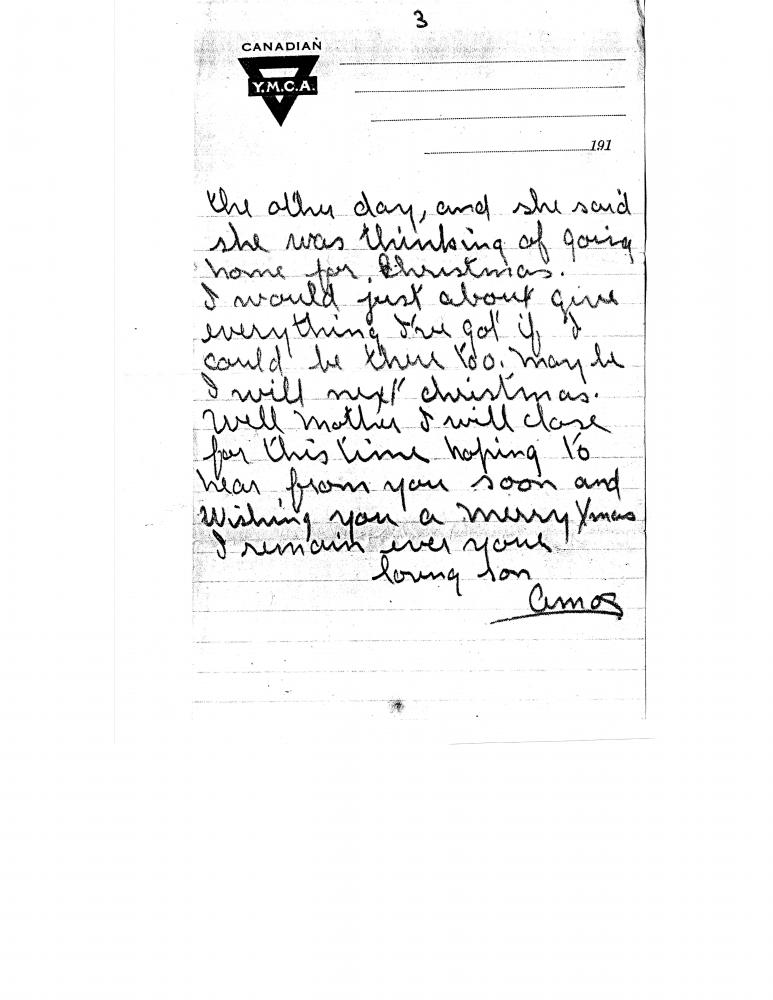 3
CANADIAN
Y.M.C.A.
191
the other day, and she said
she was thinking of going
home for Christmas.
I would just about give
everything I've got if I
could be there too. maybe
I will next christmas.
Well mother I will close
for this time hoping to
hear from you soon and
Wishing you a merry Xmas
I remain ever your
loving son
Amos